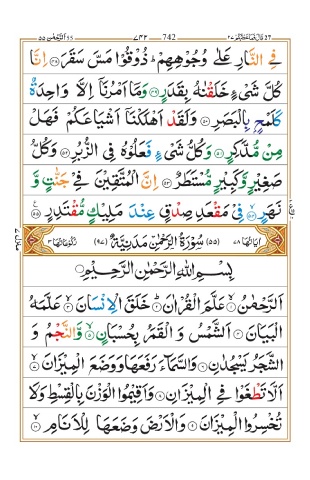 742
فِى النَّارِ عَلٰى وُجُوْهِهِمْ ؕ ذُوْقُوْا مَسَّ سَقَرَ ۝۴۸ اِنَّا
كُلَّ شَىْءٍ خَلَقْنٰهُ بِقَدَرٍ ۝۴۹ وَمَاۤ اَمْرُنَاۤ اِلَّا وَاحِدَةٌ
كَلَمْحٍۭ بِالْبَصَرِ ۝۵۰ وَلَقَدْ اَهْلَكْنَاۤ اَشْيَاعَكُمْ فَهَلْ
مِنْ مُّدَّكِرٍ ۝۵۱ وَكُلُّ شَىْءٍ فَعَلُوْهُ فِى الزُّبُرِ ۝۵۲ وَكُلُّ
صَغِيْرٍ وَّكَبِيْرٍ مُّسْتَطَرٌ ۝۵۳ اِنَّ الْمُتَّقِيْنَ فِىْ جَنّٰتٍ وَّ
نَهَرٍ ۝۵۴ فِىْ مَقْعَدِ صِدْقٍ عِنْدَ مَلِيْكٍ مُّقْتَدِرٍ ۝۵۵
اٰيَاتُهَا ۷۸ (۵۵) سُوْرَةُ الرَّحْمٰنِ مَدَنِيَّةٌ (۹۷) رُكُوْعَاتُهَا ۳
بِسْمِ اللّٰهِ الرَّحْمٰنِ الرَّحِيْمِ
اَلرَّحْمٰنُ ۝۱ عَلَّمَ الْقُرْاٰنَ ۝۲ خَلَقَ الْاِنْسَانَ ۝۳ عَلَّمَهُ
الْبَيَانَ ۝۴ اَلشَّمْسُ وَ الْقَمَرُ بِحُسْبَانٍ ۝۵ وَّالنَّجْمُ وَ
الشَّجَرُ يَسْجُدٰنِ ۝۶ وَالسَّمَآءَ رَفَعَهَا وَوَضَعَ الْمِيْزَانَ ۝۷
اَلَّا تَطْغَوْا فِى الْمِيْزَانِ ۝۸ وَاَقِيْمُوا الْوَزْنَ بِالْقِسْطِ وَلَا
تُخْسِرُوا الْمِيْزَانَ ۝۹ وَالْاَرْضَ وَضَعَهَا لِلْاَنَامِ ۝۱۰